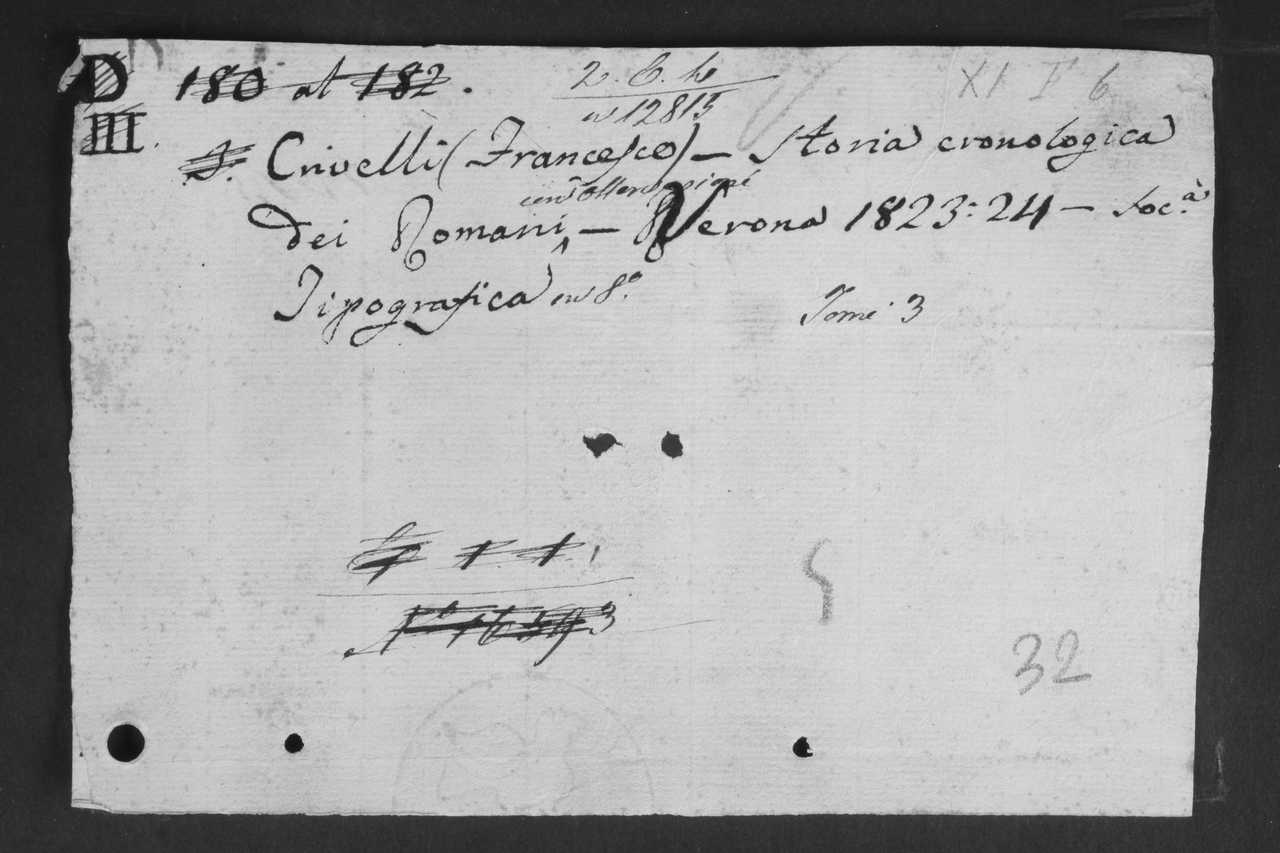 D 180 al 182. 2. 6. h XI F 6
III. n 12815
Crivelli (Francesco) — Storia cronologica
con osservazioni
dei Romani — Verona 1823:24 — Soc.à
Tipografica in 8.º Tomi 3
32